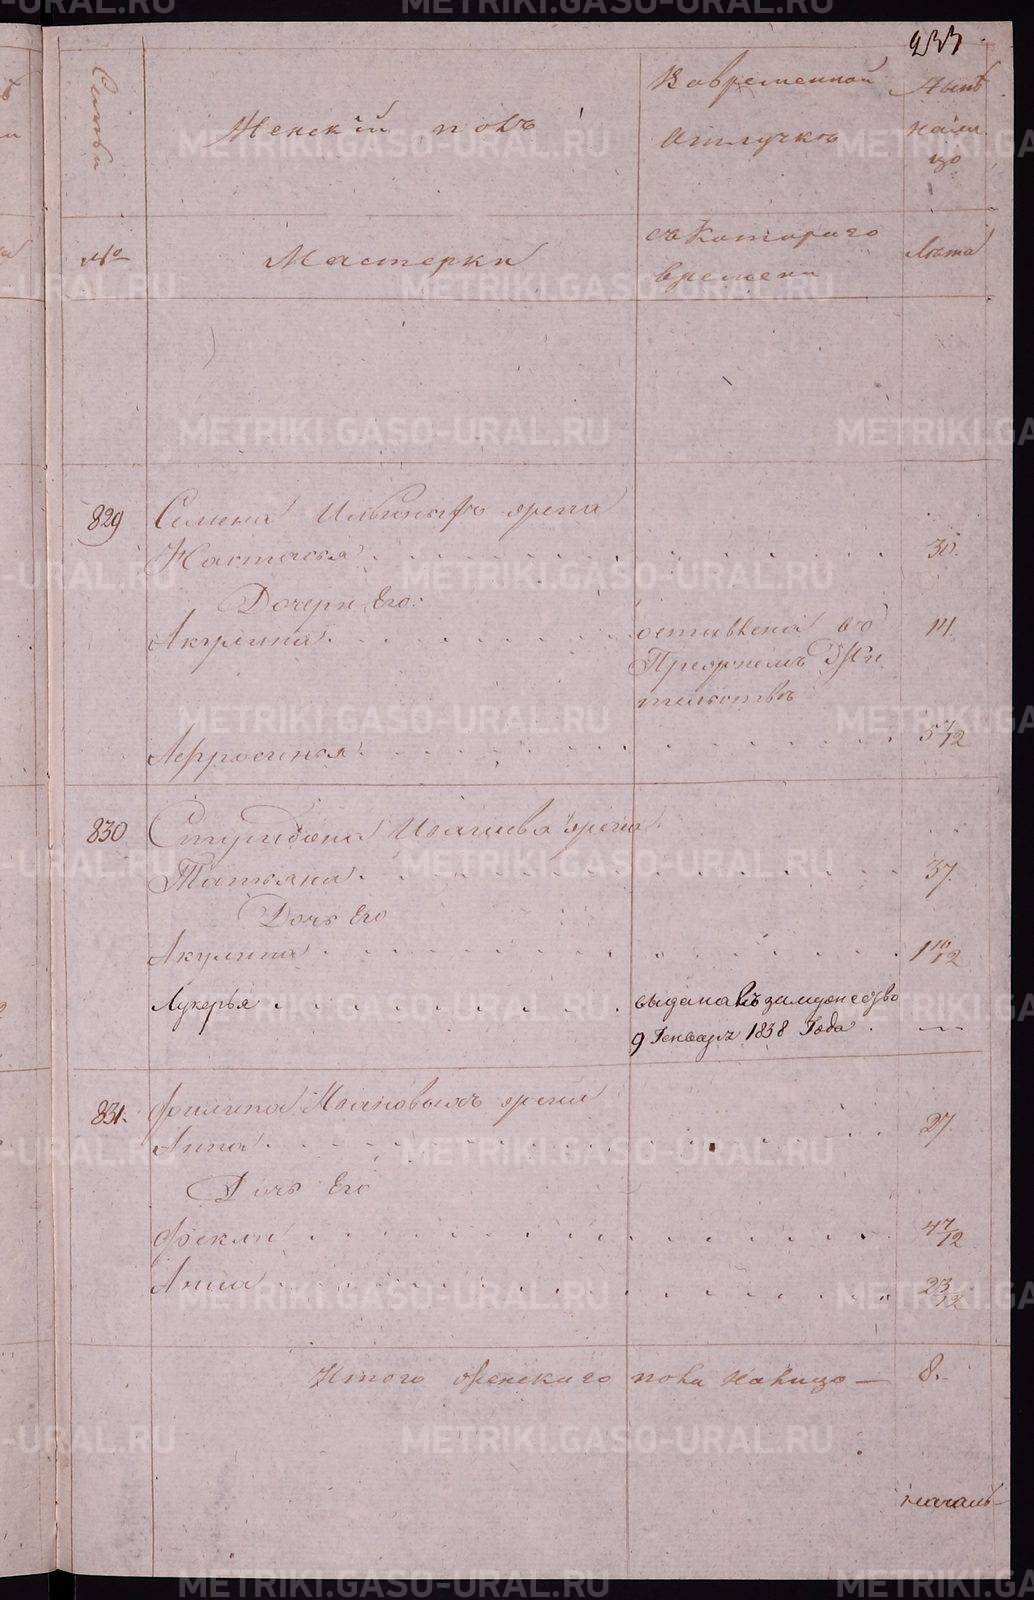 233
Семьи
Женскій полъ
Во временной
отлучкѣ
Нынѣ
на ли
цо
№
Мастерки
съ котораго
времени
Лѣта
829
Семена Ильиныхъ жена
Настасья
30.
Дочери Его:
Акулина
оставлена въ
14.
Прежнемъ Жи
тельствѣ
Афросинья
830
Спиридона Исачева жена
Татьяна
37.
Дочь Его
Акулина
1 10/12
Лукерья
выдана въ замужество
9 Генваря 1838 Года
831.
Филипа Ивановыхъ жена
Анна
27.
Дочь Его
Фекла
4 7/12
Анна
2 3/12
Итого женскаго пола налицо —
8.
началь-
METRIKI.GASO-URAL.RU